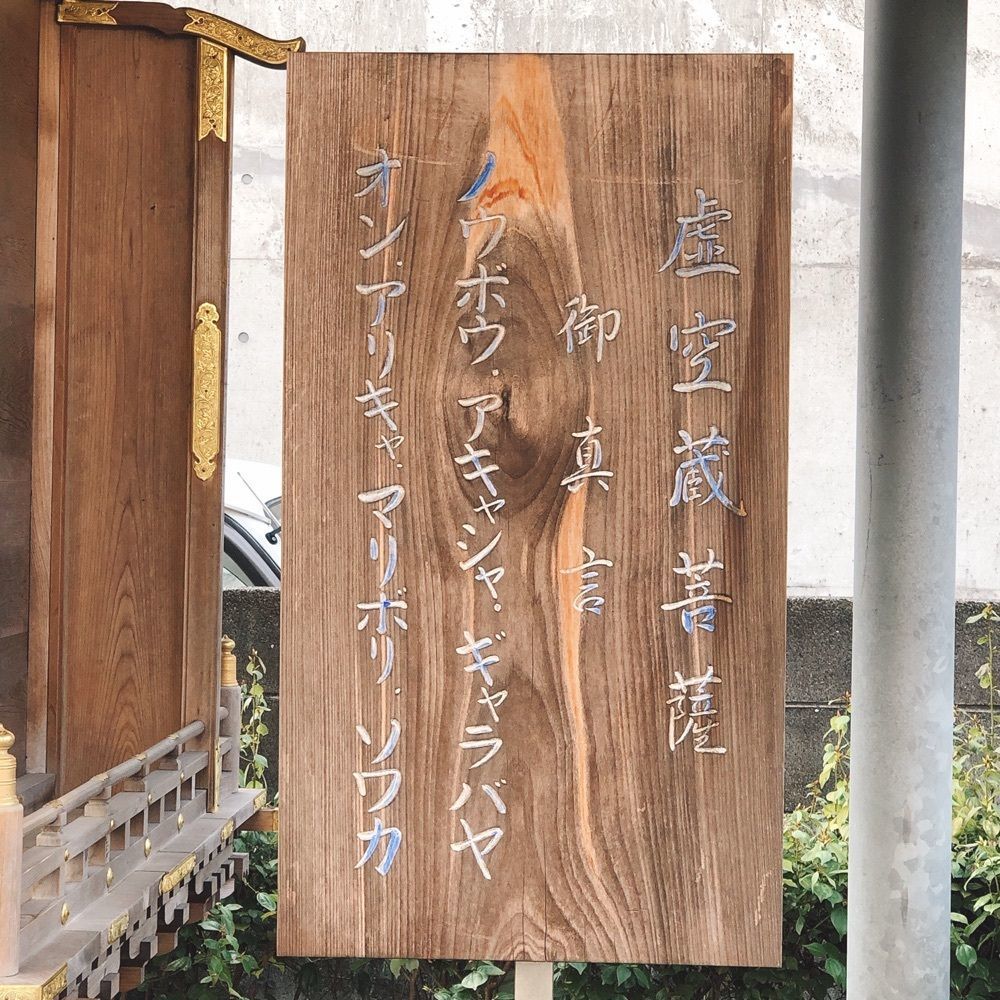 虚空蔵菩薩
御真言
ノウボウ・アキャシャ・ギャラバヤ
オン・アリキャ・マリボリ・ソワカ